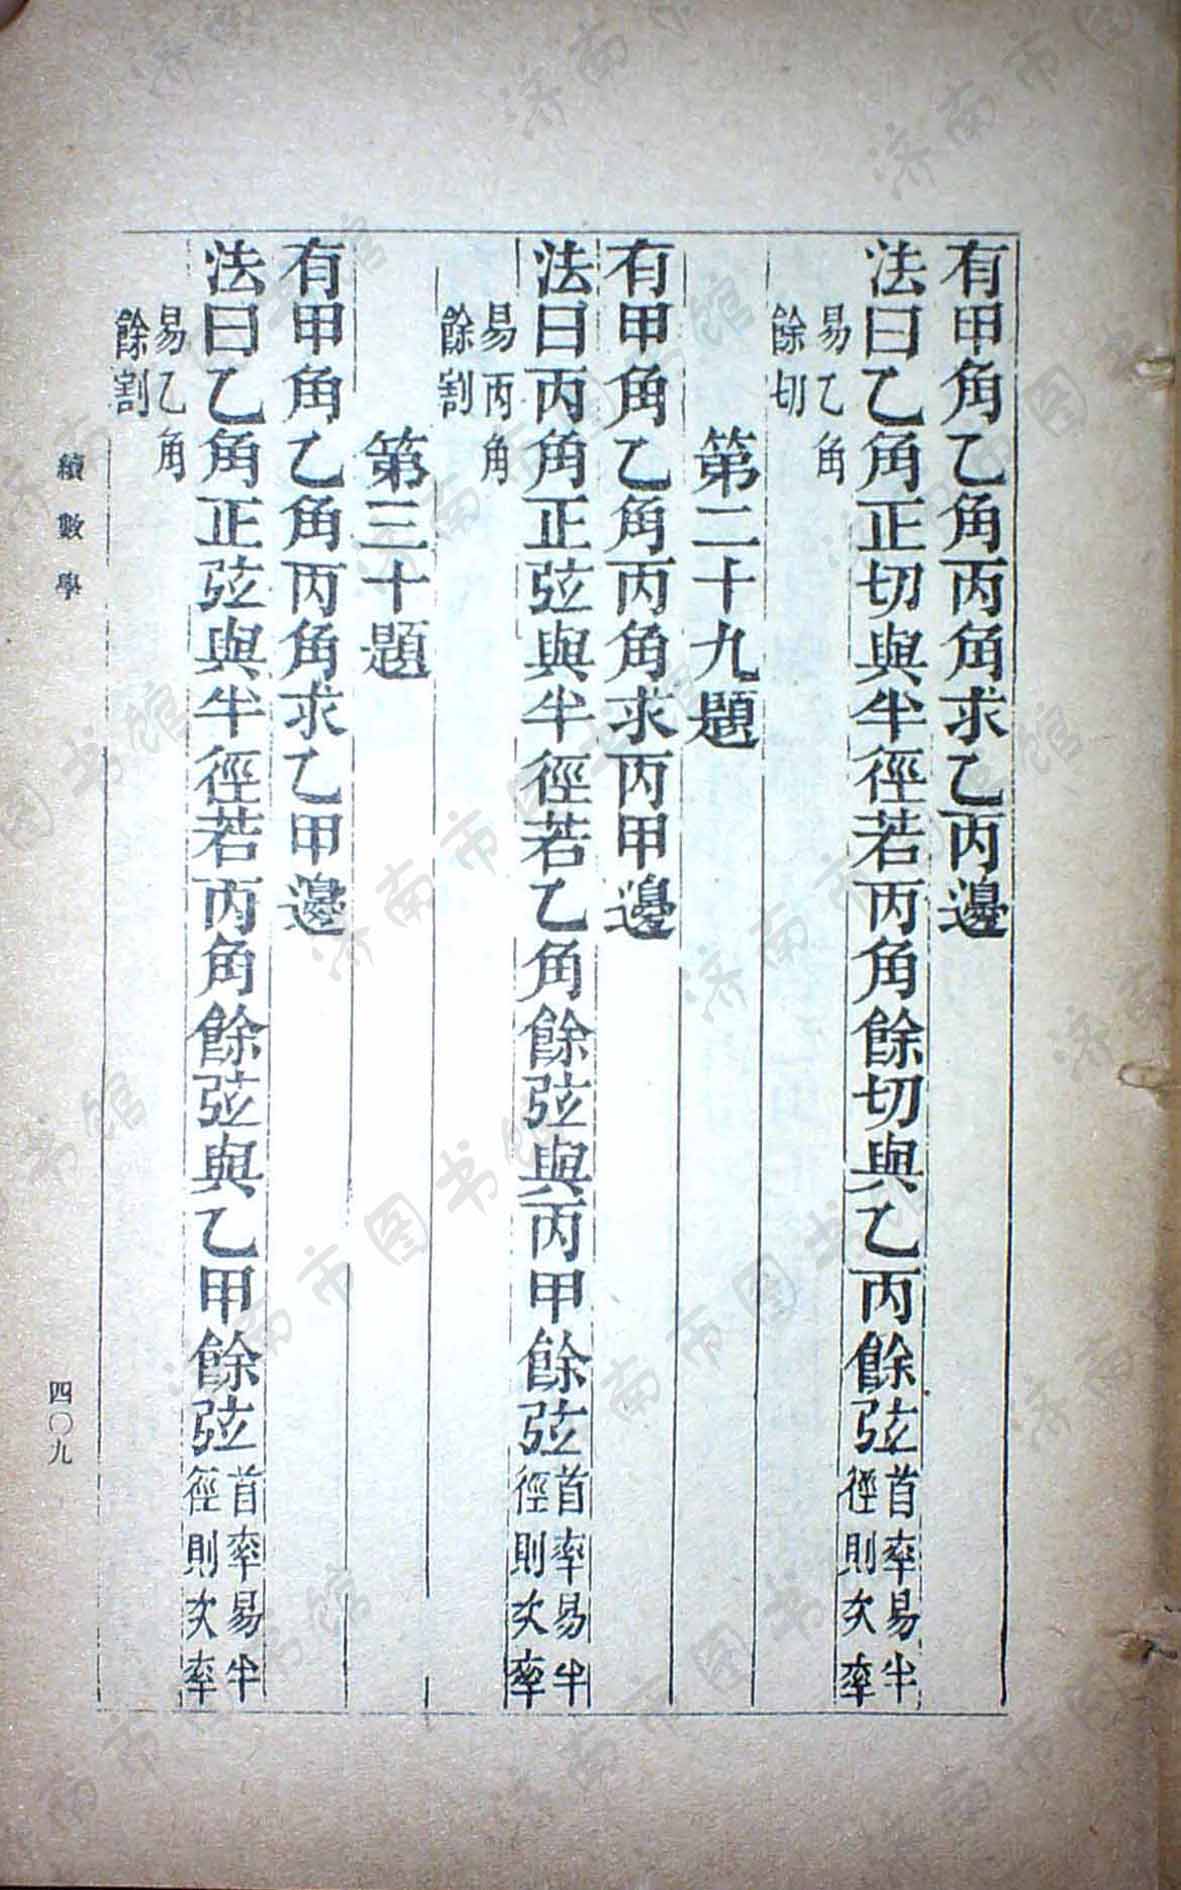 有甲角乙角丙角求乙丙邊
法曰乙角正切與半徑若丙角餘切與乙丙餘弦首率易半徑則次率
易乙角餘切
第二十九題
有甲角乙角丙角求丙甲邊
法曰丙角正弦與半徑若乙角餘弦與丙甲餘弦首率易半徑則次率
易丙角餘割
第三十題
有甲角乙角丙角求乙甲邊
法曰乙角正弦與半徑若丙角餘弦與乙甲餘弦首率易半徑則次率
易乙角餘割
續數學
四〇九
济南市图书馆